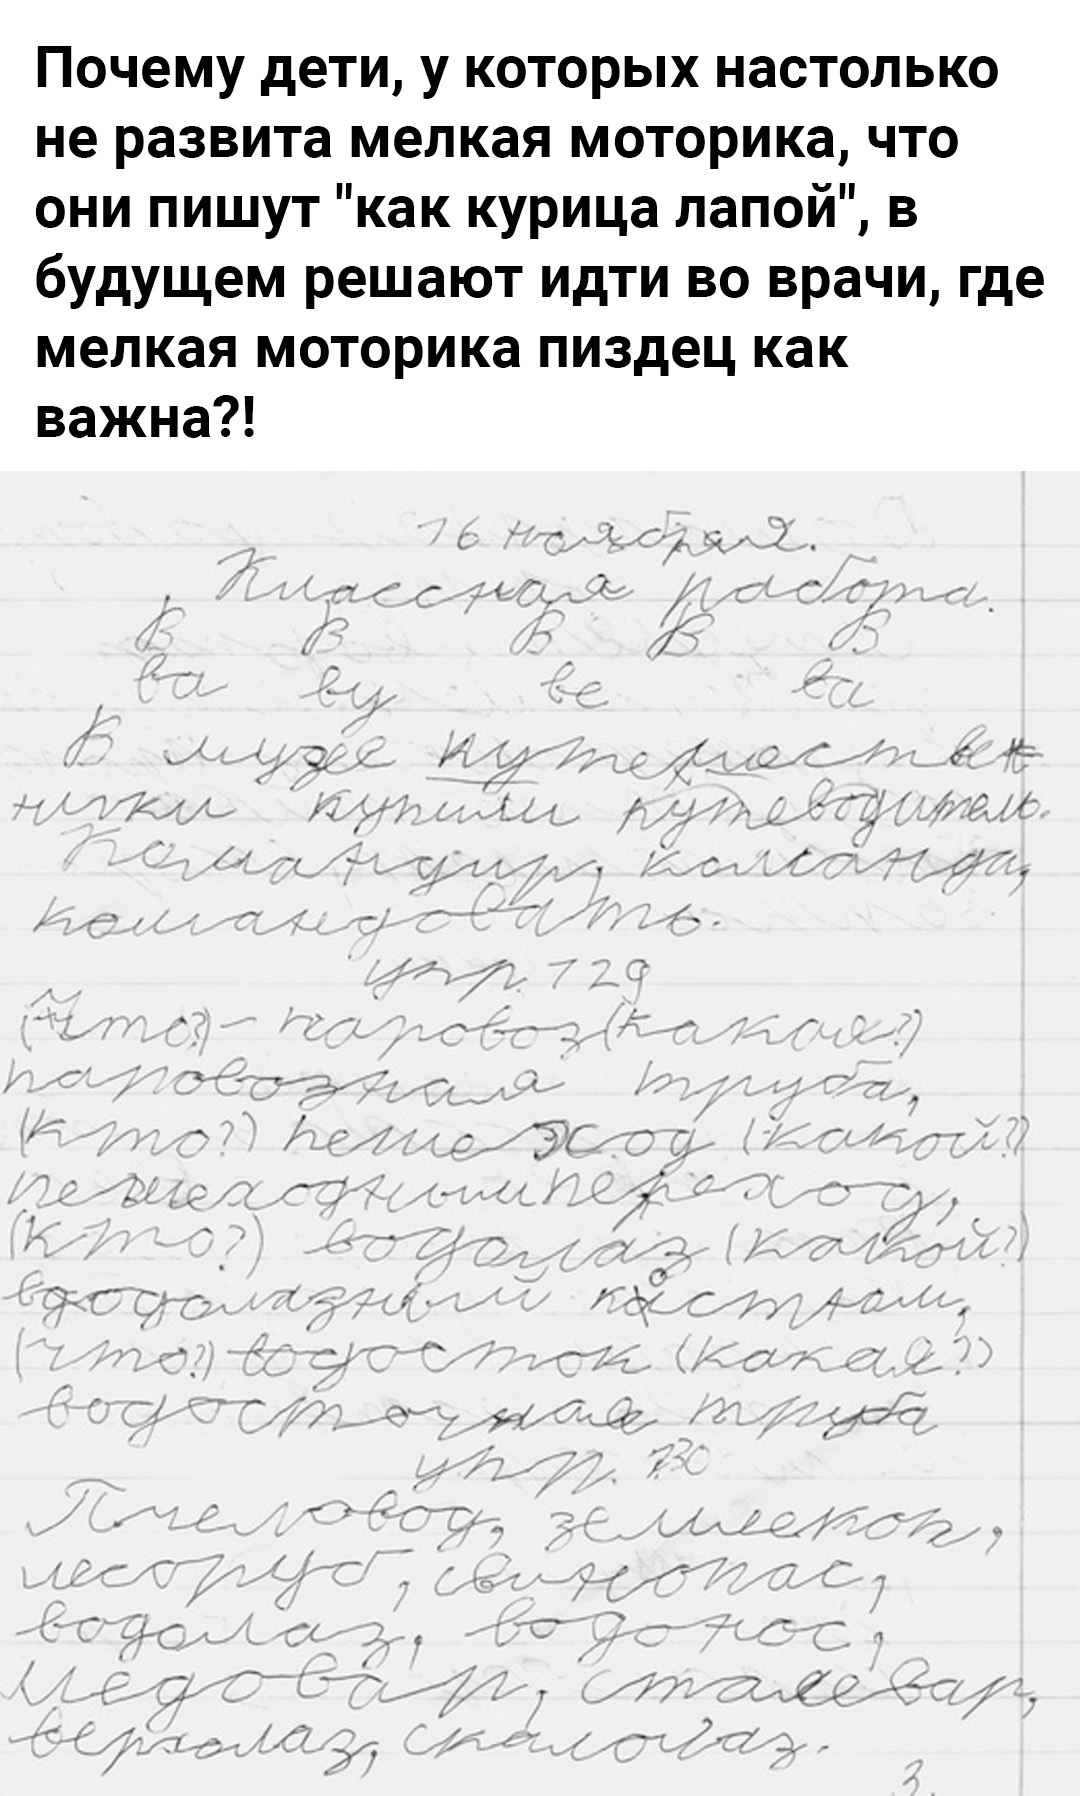 Почему дети, у которых настолько
не развита мелкая моторика, что
они пишут "как курица лапой", в
будущем решают идти во врачи, где
мелкая моторика пиздец как
важна?!
16 ноября.
Классная работа.
В В В В В
ва ву ве ва
В музее путешествен
ники купили путеводитель.
Командир, команда,
командовать.
упр. 129
(Что?) – паровоз (какая?)
паровозная труба,
(Кто?) пешеход (какой?)
пешеходный переход,
(Кто?) водолаз (какой?)
вдодолазный костюм,
(что?) водосток (какая?)
водосточная труба
упр. 130
Пчеловод, землекоп,
лесоруб, свинопас,
водолаз, водонос,
медовар, сталевар,
верхолаз, скалолаз.
3.